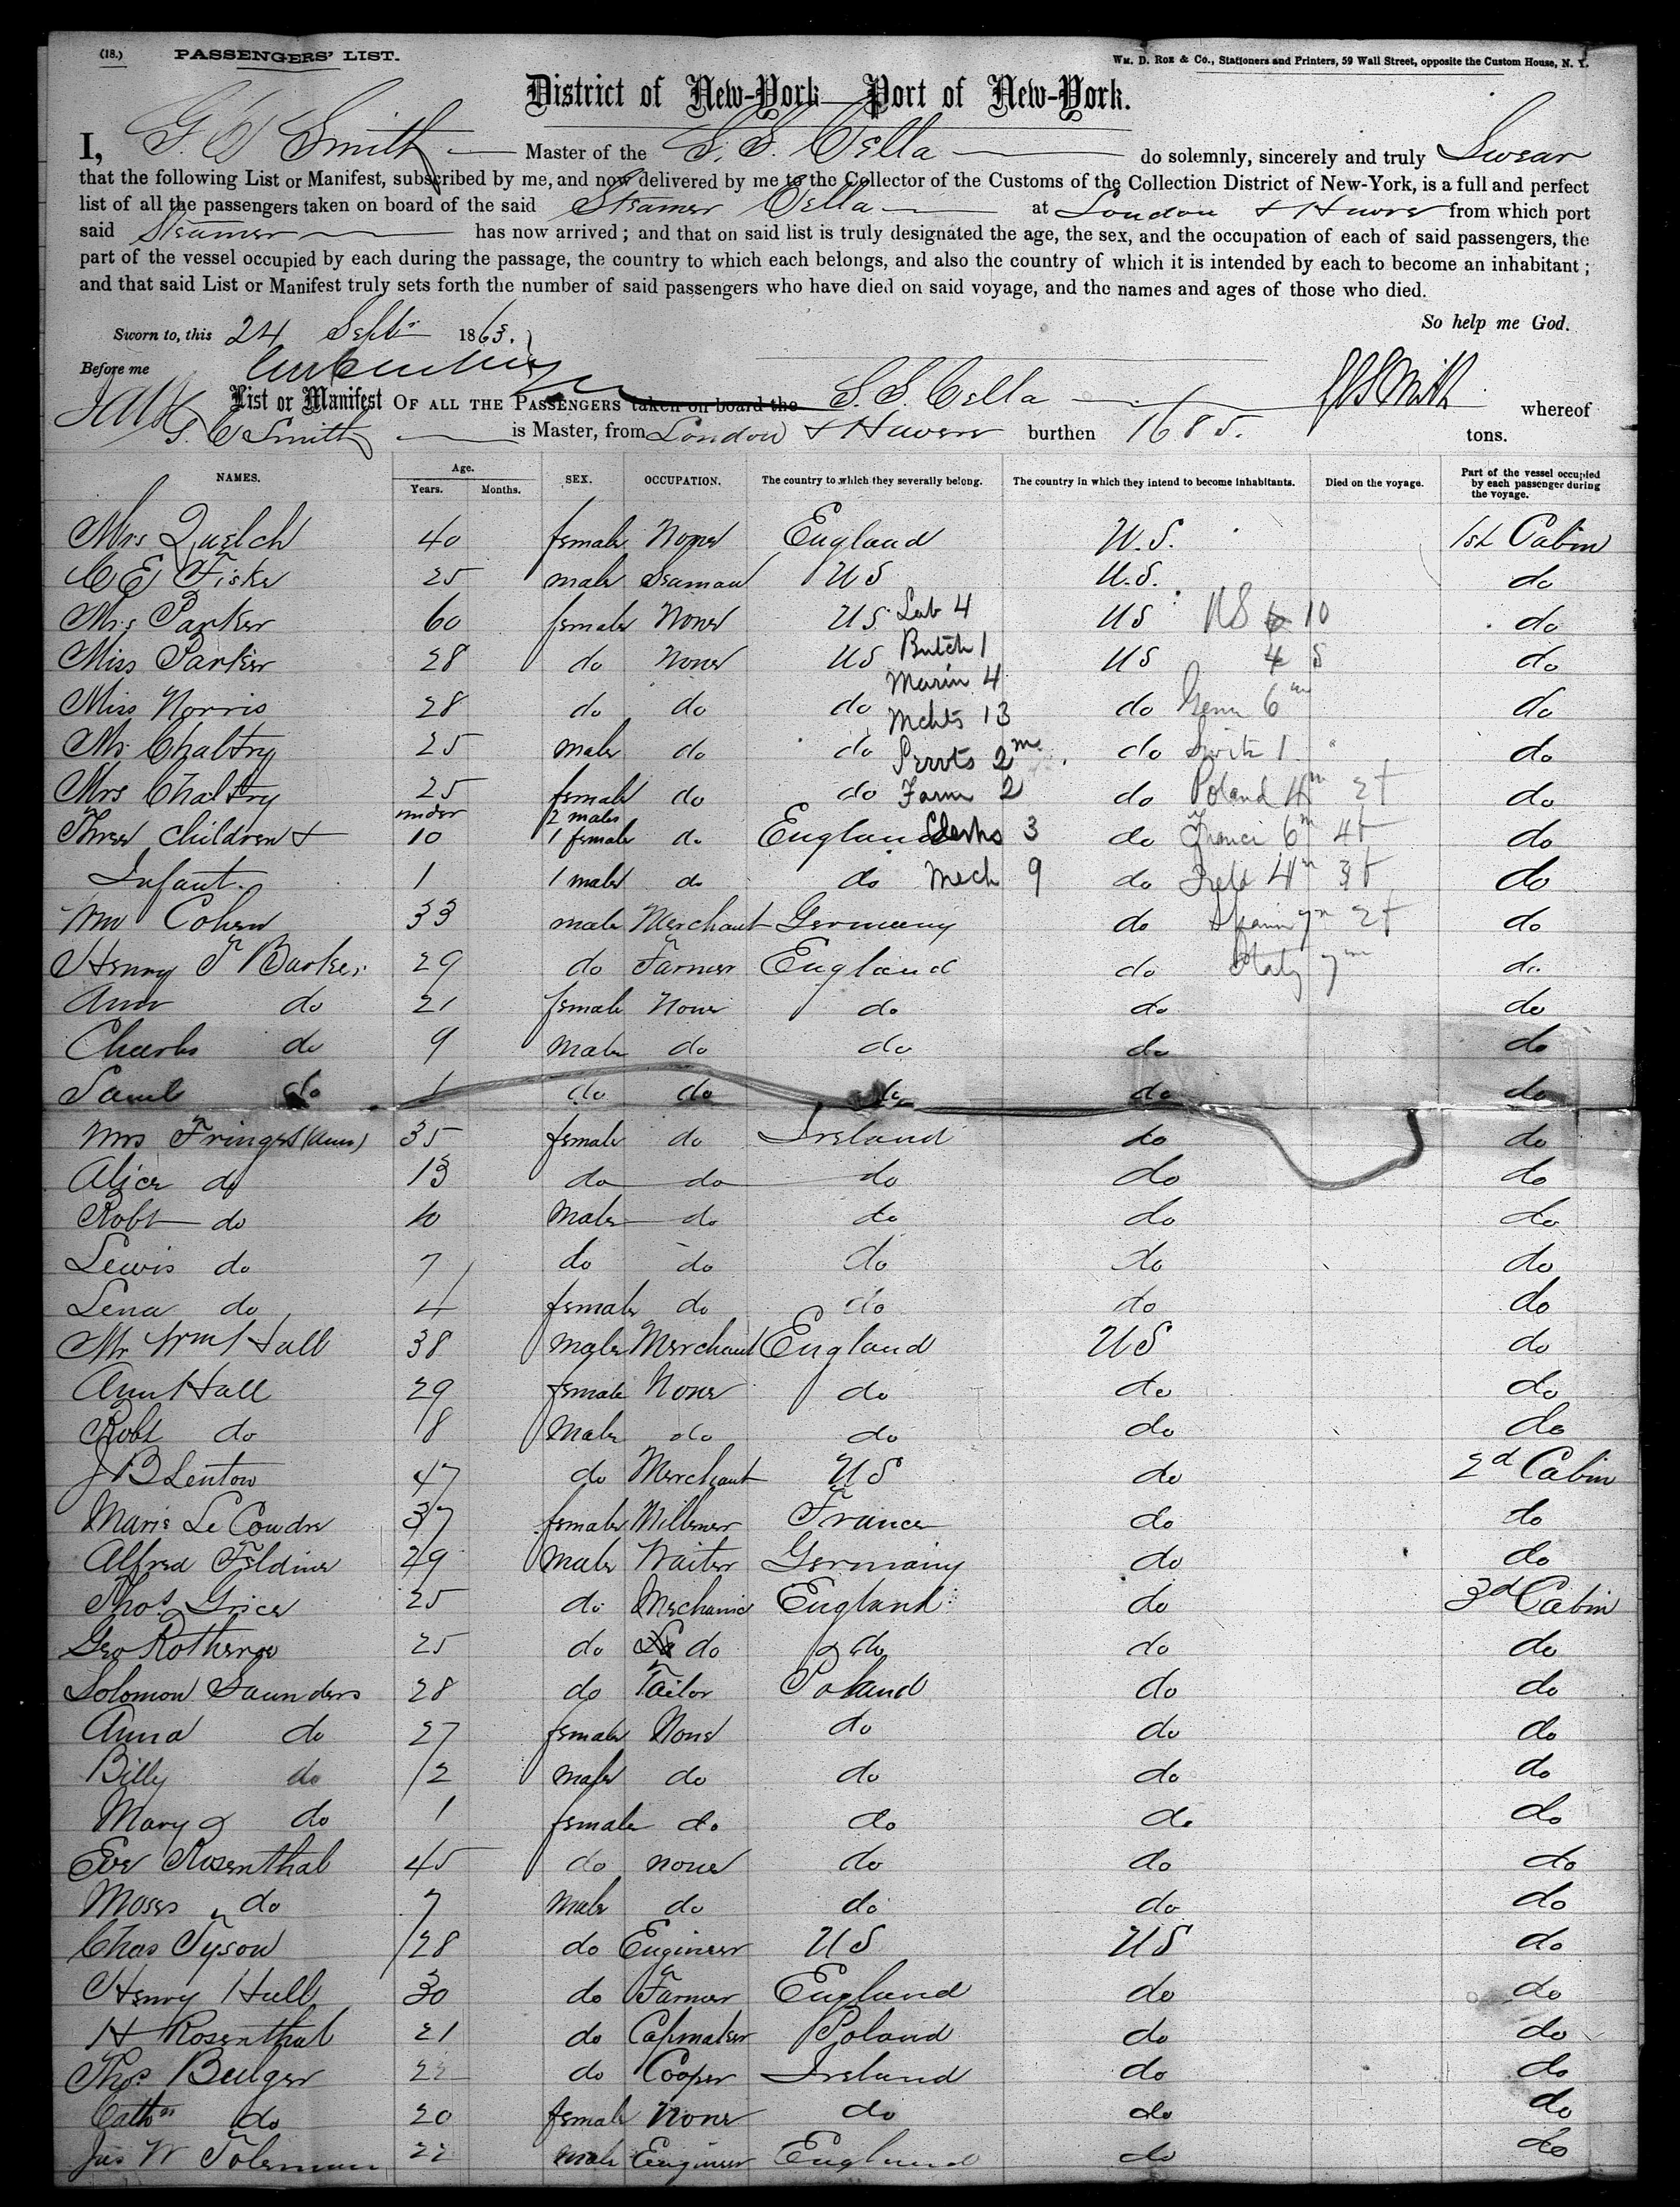 (18.) PASSENGERS' LIST.
Wm. D. Roe & Co., Stationers and Printers, 59 Wall Street, opposite the Custom House, N. Y.
District of New-York Port of New-York.
I, G. C Smith Master of the S. S. Cella do solemnly, sincerely and truly Swear
that the following List or Manifest, subscribed by me, and now delivered by me to the Collector of the Customs of the Collection District of New-York, is a full and perfect
list of all the passengers taken on board of the said Steamer Cella at London & Havre from which port
said Steamer has now arrived; and that on said list is truly designated the age, the sex, and the occupation of each of said passengers, the
part of the vessel occupied by each during the passage, the country to which each belongs, and also the country of which it is intended by each to become an inhabitant;
and that said List or Manifest truly sets forth the number of said passengers who have died on said voyage, and the names and ages of those who died.
So help me God.
Sworn to, this 24 Sept 1863.
Before me
List or Manifest OF ALL THE PASSENGERS taken on board the S. S. Cella whereof
G. C Smith is Master, from London & Havre burthen 1685. tons.
NAMES. Age. Years. Months. SEX. OCCUPATION. The country to which they severally belong. The country in which they intend to become inhabitants. Died on the voyage. Part of the vessel occupied by each passenger during the voyage.
Mrs Quelch 40 female None England U.S. 1st Cabin
C E Fiske 25 male Seaman US U.S. do
Mrs Parker 60 female None US Lab 4 US US 10 do
Miss Parker 28 do None US Butch 1 US 4 5 do
Marin 4
Miss Norris 28 do do do Mchts 13 do Germ 6 m do
Mr Chaltry 25 male do do Servts 2 m do Switz 1 do
Mrs Chaltry 25 female do do Farm 2 do Poland 4 m 2 f do
Three children & under 10 2 males 1 female do England Clerks 3 do France 6 m 4 f do
Infant 1 1 male do do Mech 9 do Ireld 4 m 3 f do
Mr Cohen 33 male Merchant Germany do Spain 7 m 2 f do
Henry F Barker 29 do Farmer England do Italy 7 m do
Ann do 21 female None do do do
Charles do 9 male do do do do
Saml do 1 do do do do do
Mrs Fringes (Ann) 35 female do Ireland do do
Alice do 13 do do do do do
Robt do 10 male do do do do
Lewis do 7 do do do do do
Lena do 4 female do do do do
Mr Wm Hall 38 male Merchant England US do
Ann Hall 29 female None do do do
Robt do 8 male do do do do
J B Lenton 47 do Merchant US do 2d Cabin
Marie Le Coudre 37 female Milliner France do do
Alfred Feldine 29 male Waiter Germany do do
Thos Grice 25 do Mechanic England do 3d Cabin
Geo Rotheroe 25 do do do do do
Solomon Saunders 28 do Tailor Poland do do
Anna do 27 female None do do do
Billy do 2 male do do do do
Mary do 1 female do do do do
Eve Rosenthal 45 do none do do do
Moses do 7 male do do do do
Chas Tyson 28 do Engineer US US do
Henry Hull 30 do Farmer England do do
H Rosenthal 21 do Capmaker Poland do do
Thos Bulger 22 do Cooper Ireland do do
Cathn do 20 female None do do do
Jas W Toleman 22 male Engineer England do do